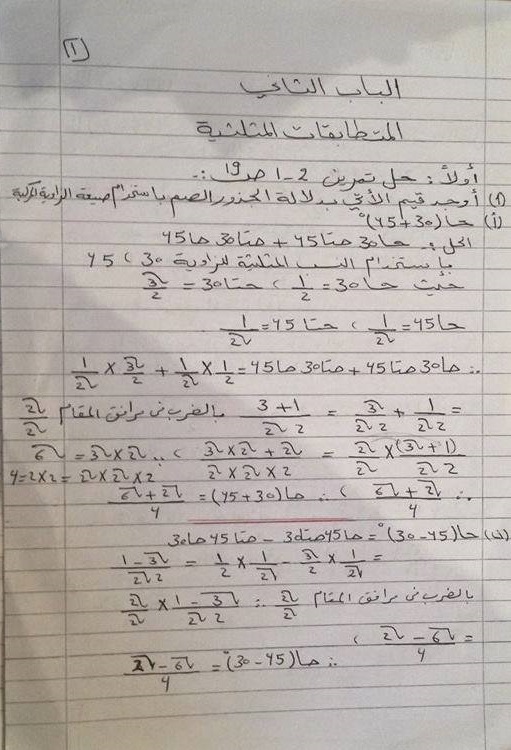 (١)
الباب الثاني
المتطابقات المثلثية
أولاً : حل تمرين 2-1 ص19 :-
(١) أوجد قيم الأتي بدلالة الجذور الصم باستخدام صيغة الزاوية المركبة
(أ) حا(30+45)°
الحل : حا30 حتا45 + حتا30 حا45
بإستخدام النسب المثلثية للزاوية 30 ، 45
حيث حا30 = 1/2 ، حتا30 = √3/2
حا45 = 1/√2 ، حتا45 = 1/√2
∴ حا30 حتا45 + حتا30 حا45 = 1/2 × 1/√2 + √3/2 × 1/√2
= 1/2√2 + √3/2√2 = 1+3/2√2 بالضرب في مرافق المقام √2/√2
(1+√3)/2√2 × √2/√2 = √2+√2×√3/2×√2×√2 ، ∵ √2×√3 = √6
2×√2×√2 = 2×2 = 4
∴ √2+√6/4 ، ∴ حا(30+45) = √2+√6/4
(ب) حا(45-30)° = حا45 حتا30 - حتا45 حا30
= 1/√2 × √3/2 - 1/√2 × 1/2 = √3-1/2√2
بالضرب في مرافق المقام √2/√2 ∴ √3-1/2√2 × √2/√2
= √6-√2/4 ،
∴ حا(45-30)° = √6-√2/4